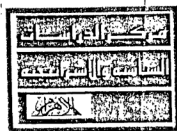 مركز الدراسات
السياسية والاستراتيجية
الأهرام